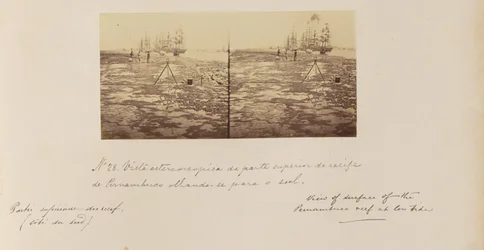 Nº 28. Vista estereoscopica da parte superior do recife
de Pernambuco olhando-se para o sul.
Partie supérieure du récif.
(côté du sud)
View of surface of the
Pernambuco reef at low tide